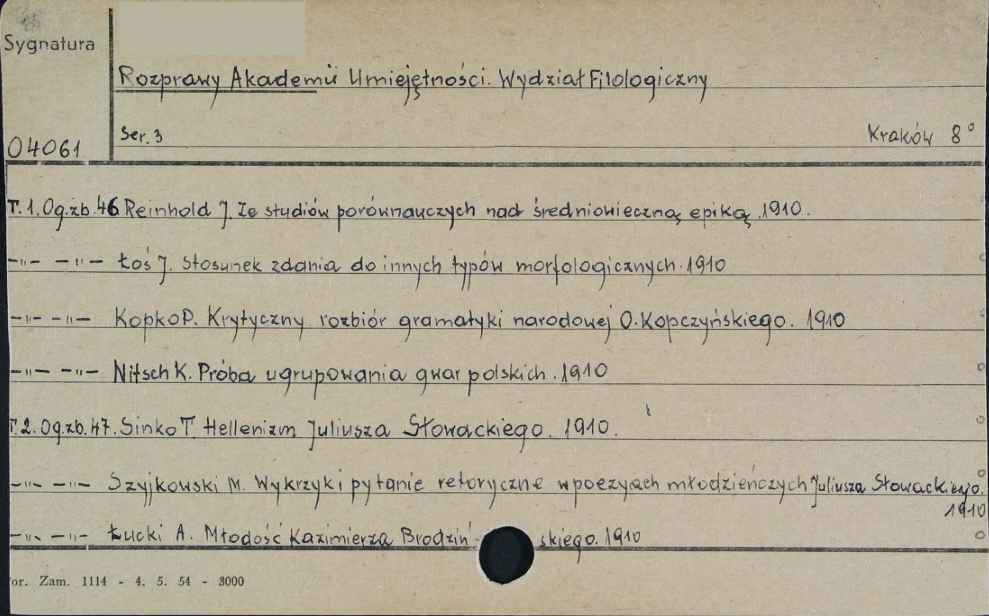 Sygnatura
Rozprawy Akademii Umiejętności. Wydział Filologiczny
04061
Ser. 3 Kraków 8°
T.1.Og.zb.46 Reinhold J. Ze studiów porównawczych nad średniowieczną epiką. 1910.
—"— —"— Łoś J. Stosunek zdania do innych typów morfologicznych. 1910
—"— —"— Kopko P. Krytyczny rozbiór gramatyki narodowej O. Kopczyńskiego. 1910
—"— —"— Nitsch K. Próba ugrupowania gwar polskich. 1910
T.2.Og.zb.47. Sinko T. Hellenizm Juliusza Słowackiego. 1910.
—"— —"— Szyjkowski M. Wykrzyki pytanie retoryczne w poezyach młodzieńczych Juliusza Słowackiego.
1910
—"— —"— Łucki A. Młodość Kazimierza Brodziń-skiego. 1910
or. Zam. 1114 - 4. 5. 54 - 3000